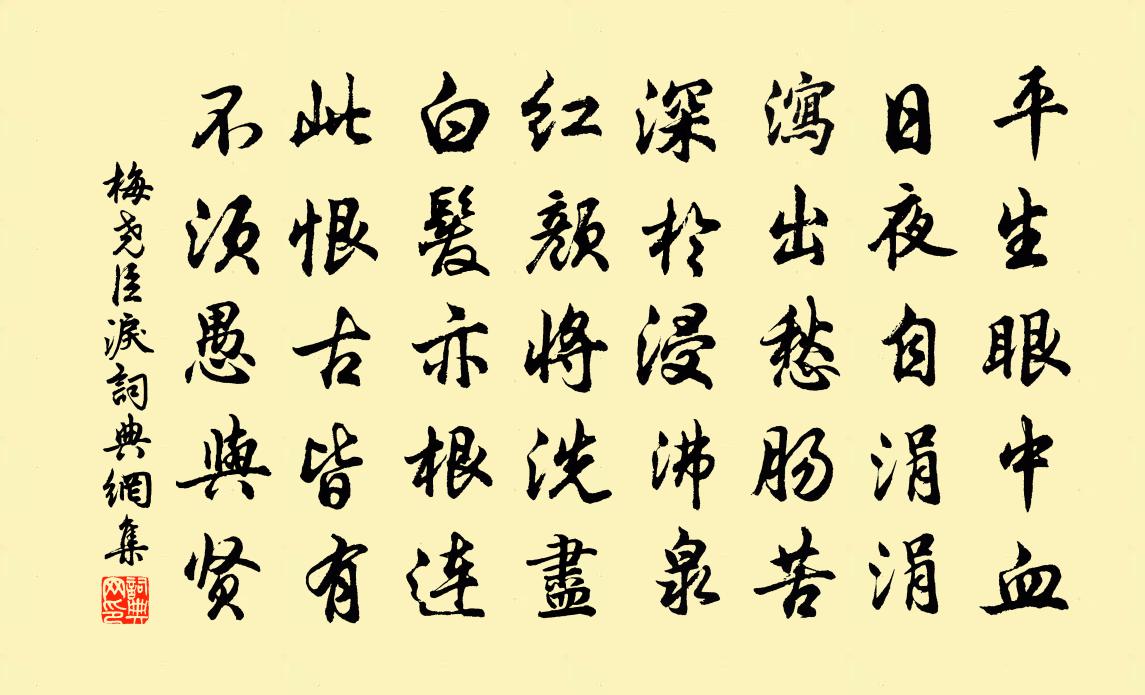 平生眼中血
日夜自涓涓
瀉出愁肠苦
深於浸沸泉
红顏将洗盡
白髮亦根连
此恨古皆有
不须愚與贤
梅尧臣淚詞典網集
詞典网印